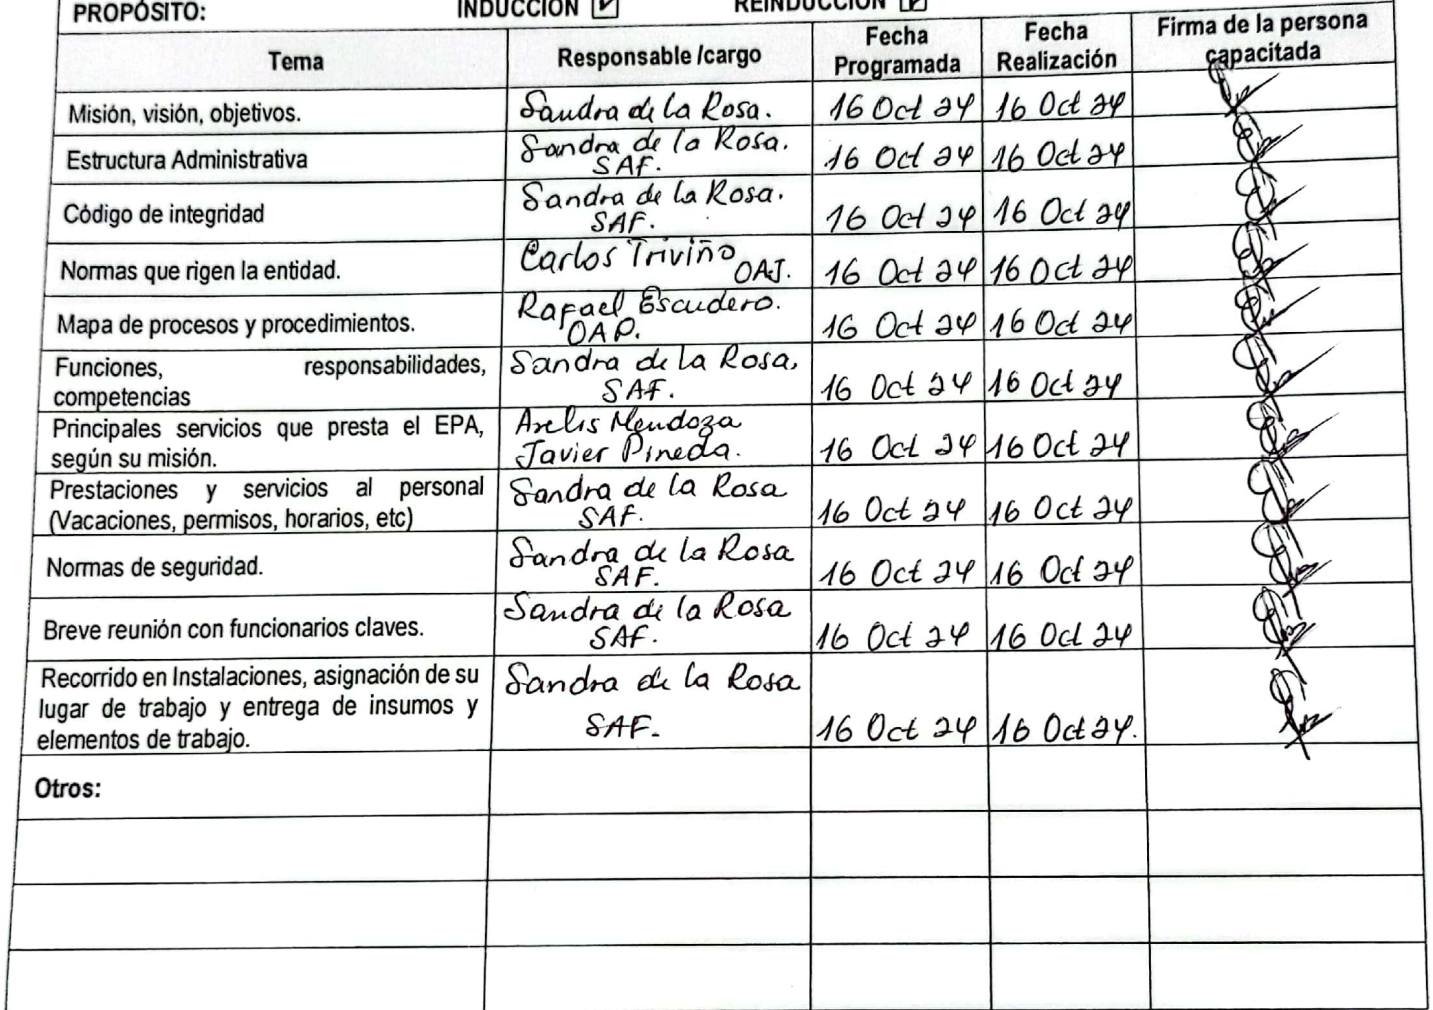 PROPÓSITO: INDUCCIÓN REINDUCCIÓN
Tema Responsable /cargo Fecha Programada Fecha Realización Firma de la persona capacitada
Misión, visión, objetivos. Sandra de la Rosa. 16 Oct 24 16 Oct 24
Estructura Administrativa Sandra de la Rosa. SAF. 16 Oct 24 16 Oct 24
Código de integridad Sandra de la Rosa. SAF. 16 Oct 24 16 Oct 24
Normas que rigen la entidad. Carlos Triviño OAJ. 16 Oct 24 16 Oct 24
Mapa de procesos y procedimientos. Rafael Escudero. OAP. 16 Oct 24 16 Oct 24
Funciones, responsabilidades,
competencias Sandra de la Rosa, SAF. 16 Oct 24 16 Oct 24
Principales servicios que presta el EPA, Arelis Mendoza
según su misión. Javier Pineda. 16 Oct 24 16 Oct 24
Prestaciones y servicios al personal Sandra de la Rosa
(Vacaciones, permisos, horarios, etc) SAF. 16 Oct 24 16 Oct 24
Normas de seguridad. Sandra de la Rosa SAF. 16 Oct 24 16 Oct 24
Breve reunión con funcionarios claves. Sandra de la Rosa SAF. 16 Oct 24 16 Oct 24
Recorrido en Instalaciones, asignación de su Sandra de la Rosa
lugar de trabajo y entrega de insumos y
elementos de trabajo. SAF. 16 Oct 24 16 Oct 24.
Otros: